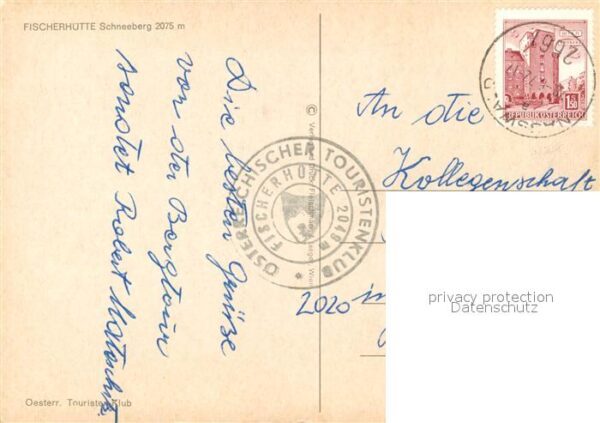 FISCHERHÜTTE Schneeberg 2075 m
Die besten Grüße
von der Bergtour
sendet Robert
ÖSTERREICHISCHER TOURISTENKLUB
FISCHERHÜTTE 2049 m
Oesterr. Touristen-Klub
2661
1.50
REPUBLIK ÖSTERREICH
An die
Kollegenschaft
2020 in
privacy protection
Datenschutz